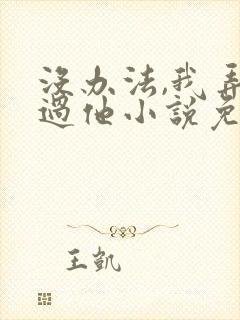 没办法,我弄
过他小说免
王凯